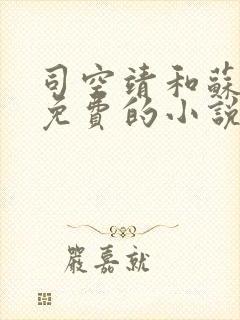 司空靖和蘇
免費的小說
嚴嘉就